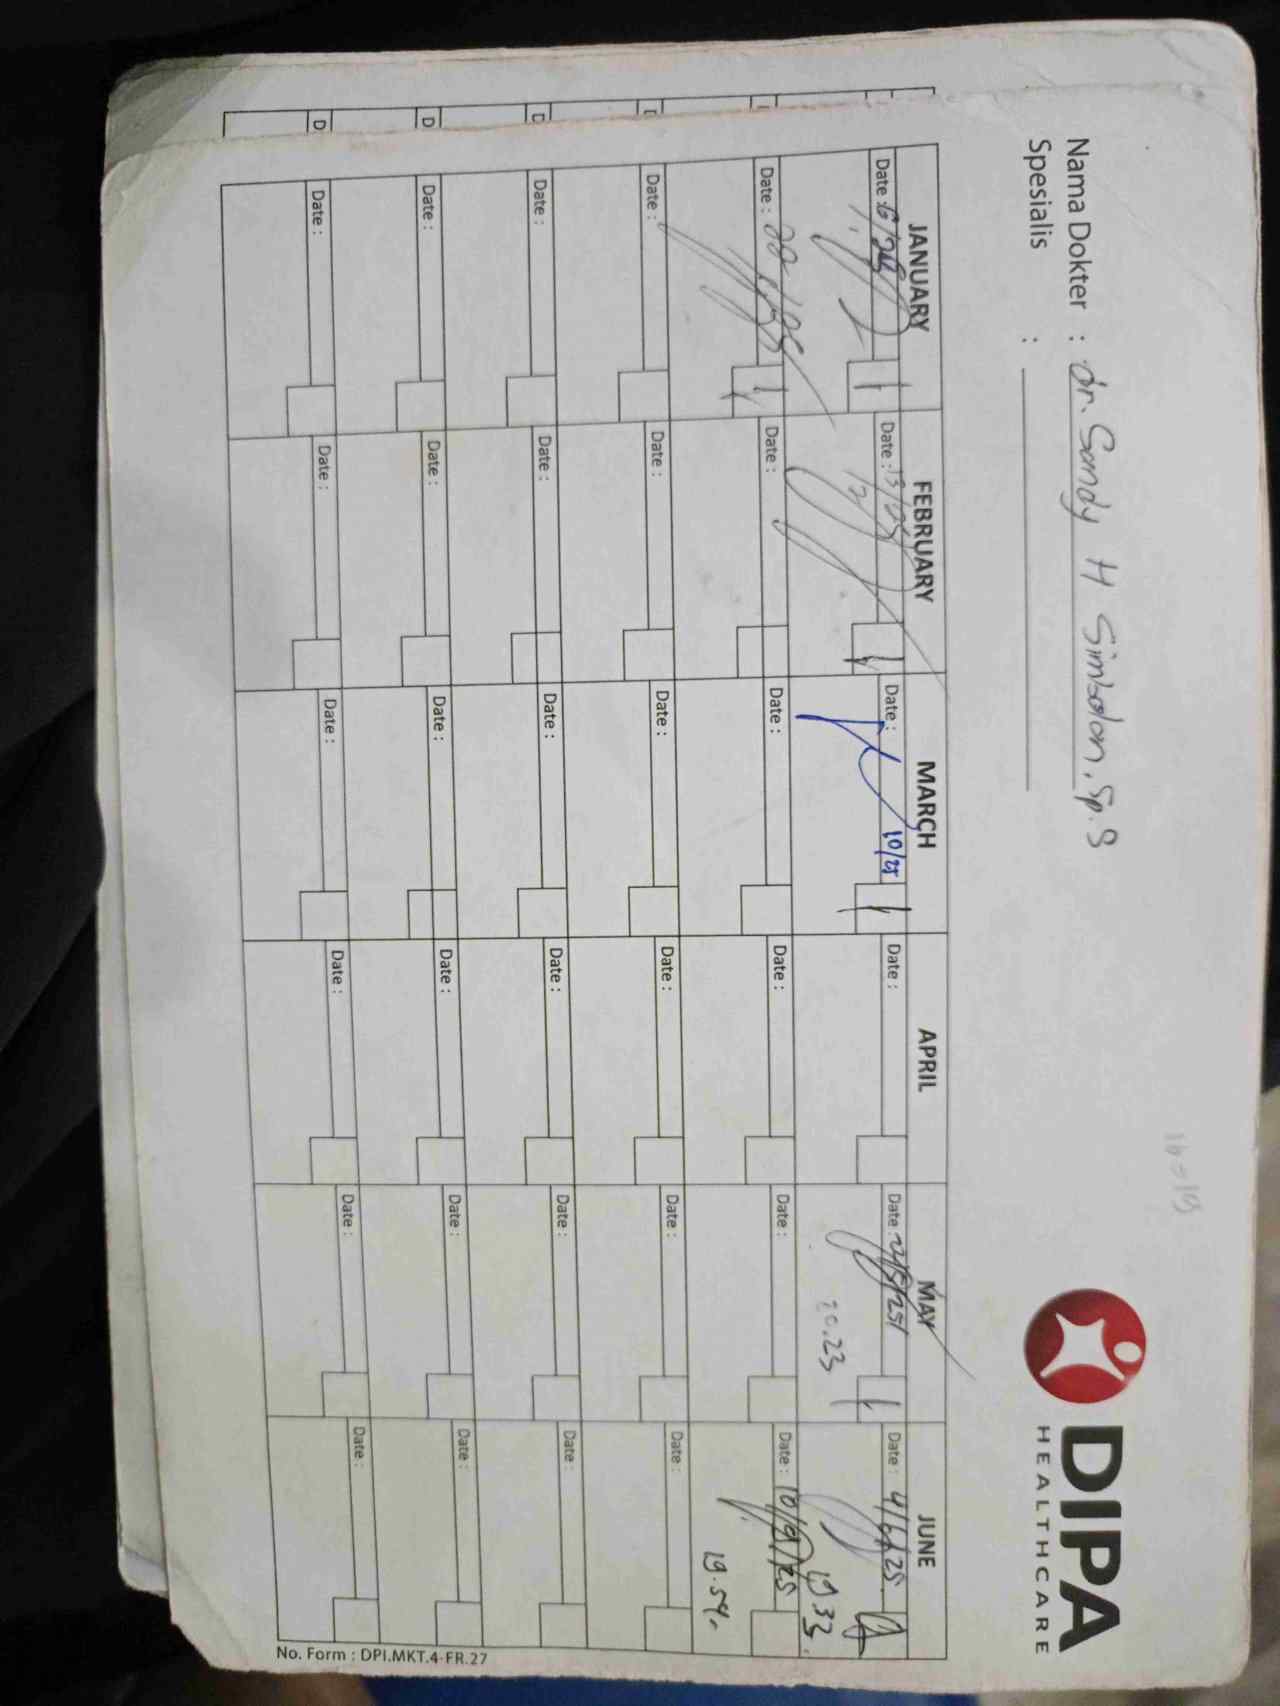 16 = 19
DIPA
HEALTHCARE
Nama Dokter : dr. Sandy H Simbolon. Sp. S
Spesialis :
JANUARY FEBRUARY MARCH APRIL MAY JUNE
Date : Date : 13/25 Date : 10/25 Date : Date : 21/5/25 Date : 4/6/25
2 20.23 19 33.
Date : Date : Date : Date : Date : Date : 10/9/25
19.54.
Date : Date : Date : Date : Date : Date :
Date : Date : Date : Date : Date : Date :
Date : Date : Date : Date : Date : Date :
Date : Date : Date : Date : Date : Date :
No. Form : DPI.MKT.4-FR.27
D D D D